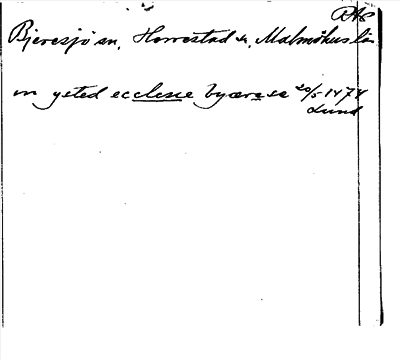 RAS
Bjeresjö sn, Herrestad hd, Malmöhus län
in ysted ecclesie byæresæ 20/5 1474
Lund